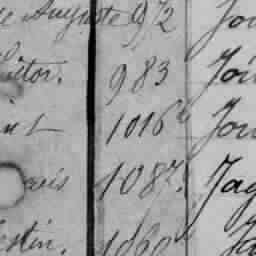 de Auguste 972 Jou
Victor. 983 Joü
int 1016 Jou
ouis 1087. Jag
estin. 1060 Ja